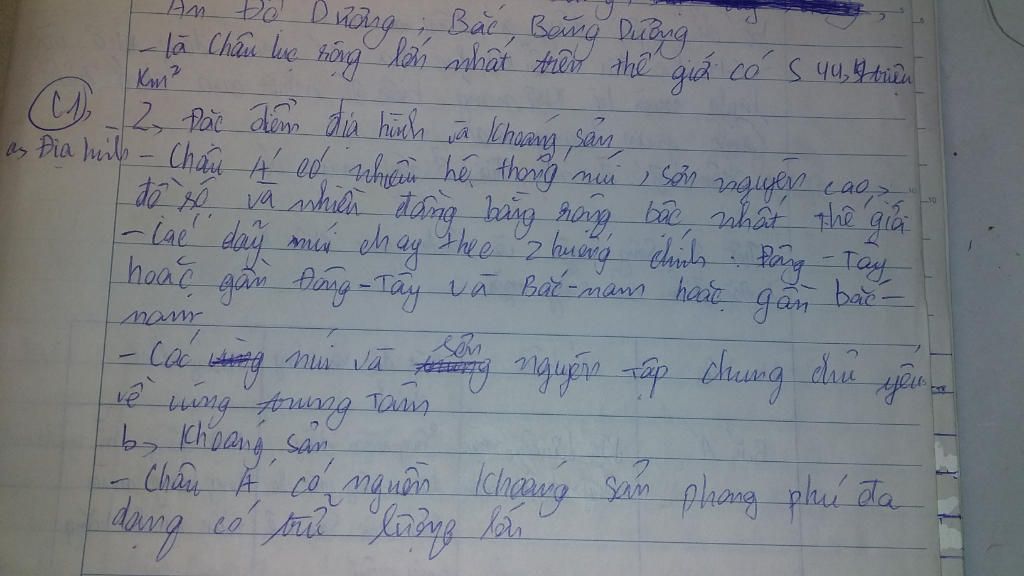 Ấn Độ Dương; Bắc Băng Dương
- là châu lục rộng lớn nhất trên thế giới có S 44,4 triệu
Km²
C1,
2, Đặc điểm địa hình và khoáng sản
a, Địa hình - Châu Á có nhiều hệ thống núi, sơn nguyên cao,
đồ sộ và nhiều đồng bằng rộng bậc nhất thế giới
- Các dãy núi chạy theo 2 hướng chính: Đông - Tây
hoặc gần Đông - Tây và Bắc - nam hoặc gần bắc -
nam
- Các núi và sơn nguyên tập chung chủ yếu
về vùng trung tâm
b, Khoáng sản
- Châu Á có nguồn khoáng sản phong phú đa
dạng có trữ lượng lớn